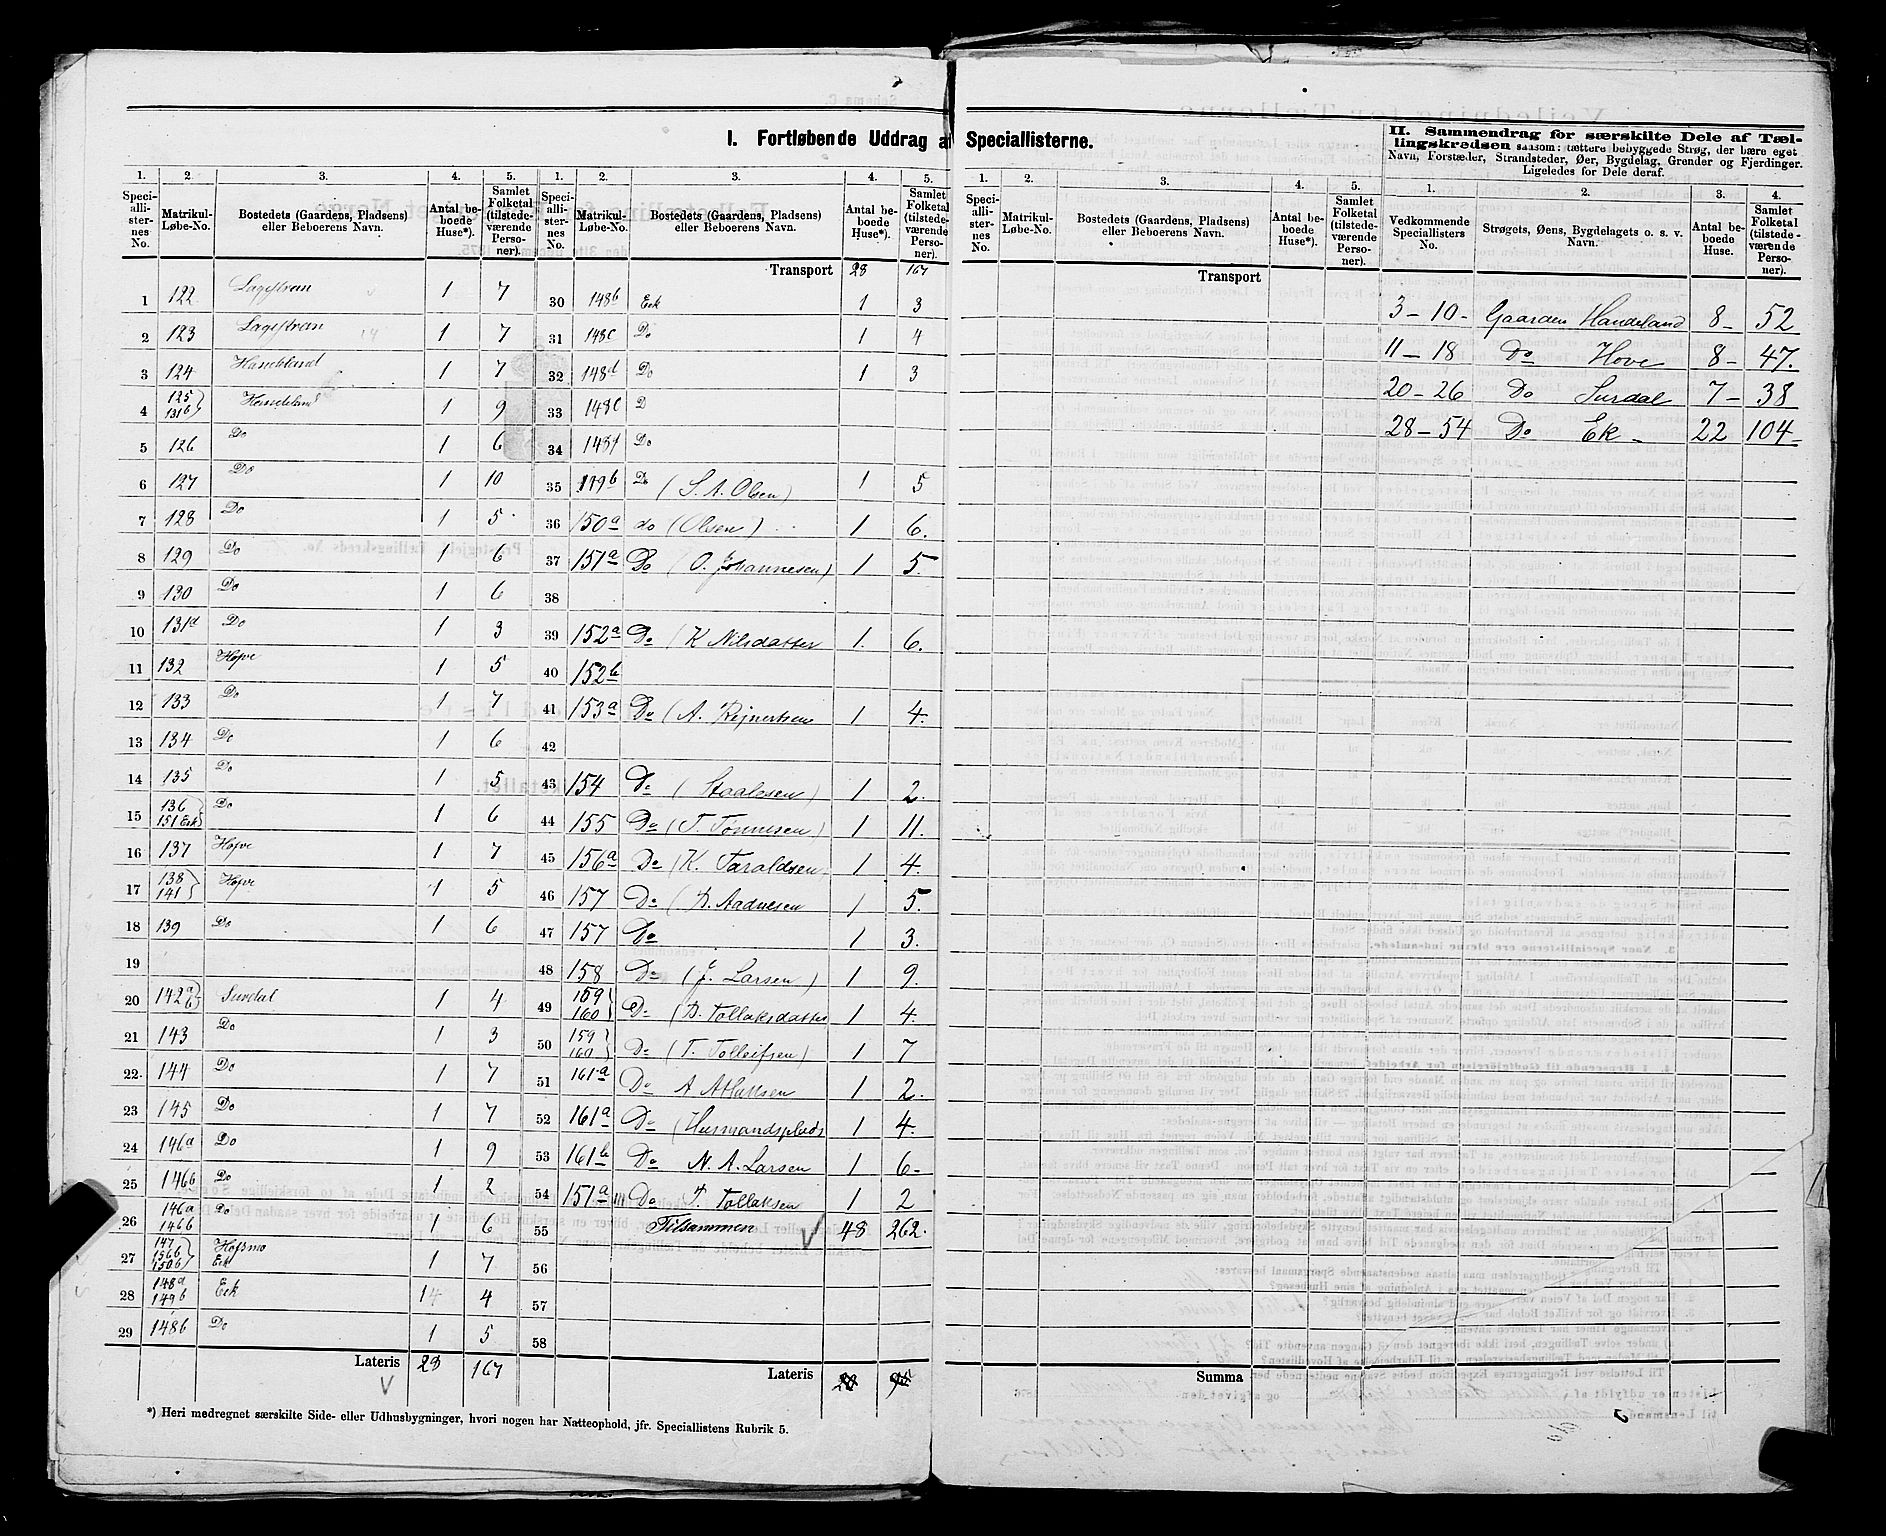 I. Fortløbende Uddrag af Speciallisterne.
1. 2. 3. 4. 5.
Speciallisternes No. Matrikul-Løbe-No. Bostedets (Gaardens, Pladsens) eller Beboerens Navn. Antal beboede Huse*). Samlet Folketal (tilstedeværende Personer).
1 122 1 7
2 123 1 7
3 124 1 7
4 125 131b 1 9
5 126 Do 1 6
6 127 Do 1 10
7 128 Do 1 5
8 129 Do 1 6
9 130 Do 1 6
10 131a Do 1 3
11 132 Hofve 1 5
12 133 Do 1 7
13 134 Do 1 6
14 135 Do 1 5
15 136 151 Eek Do 1 6
16 137 Hofve 1 7
17 138 141 Hofve 1 5
18 139 Do 1 6
19
20 142 a b Surdal 1 4
21 143 Do 1 3
22 144 Do 1 7
23 145 Do 1 7
24 146a Do 1 9
25 146b Do 1 2
26 146a 146b Do 1 6
27 147 156b 150b Hofsmo Eek 1 7
28 148a 149b Eek 1 4
29 148b Do 1 5
Lateris 28 167
*) Heri medregnet særskilte Side- eller Udhusbygninger, hvori nogen har Natteophold, jfr. Speciallistens Rubrik 5.
1. 2. 3. 4. 5.
Speciallisternes No. Matrikul-Løbe-No. Bostedets (Gaardens, Pladsens) eller Beboerens Navn. Antal beboede Huse*). Samlet Folketal (tilstedeværende Personer).
Transport 28 167
30 148b Eek 1 3
31 148c Do 1 4
32 148d Do 1 3
33 148e D
34 148f Do
35 149b Do (S. A. Olsen) 1 5
36 150a do (Olsen) 1 6.
37 151a Do (O. Johannesen) 1 5.
38
39 152a Do (K Nilsdatter 1. 6.
40 152b
41 153a Do (A. Rejnertsen 1 4.
42
43 154 Do (Staalesen) 1 2.
44 155 Do (T. Tønnesen) 1 11.
45 156a Do (K. Taraldsen 1 4.
46 157 Do (B. Aadnesen 1 5.
47 157 Do 1 3.
48 158 Do (J. Larsen) 1 9.
49 159 160 Do (B. Tollaksdatter 1 4.
50 159 160 Do (T. Tolleifsen) 1 7
51 161a Do A Atlaksen 1 2.
52 161a Do (Husmandsplads 1 4.
53 161b Do N. A. Larsen 1 6-
54 151a Do T. Tollaksen 1 2
55 Tilsammen 48 262.
56
57
58
Lateris
1. 2. 3. 4. 5.
Speciallisternes No. Matrikul-Løbe-No. Bostedets (Gaardens, Pladsens) eller Beboerens Navn. Antal beboede Huse*). Samlet Folketal (tilstedeværende Personer).
Transport
Summa
II. Sammendrag for særskilte Dele af Tællingskredsen saasom: tættere bebyggede Strøg, der bære eget
Navn, Forstæder, Strandsteder, Øer, Bygdelag, Grender og Fjerdinger.
Ligeledes for Dele deraf.
1. 2. 3. 4.
Vedkommende Speciallisters No. Strøgets, Øens, Bygdelagets o. s. v. Navn. Antal beboede Huse. Samlet Folketal (tilstedeværende Personer).
3-10- Gaarden Handeland 8- 52
11-18 Do Hove 8- 47.
20-26 Do Surdal 7- 38
28-54 Do Ek- 22 104-